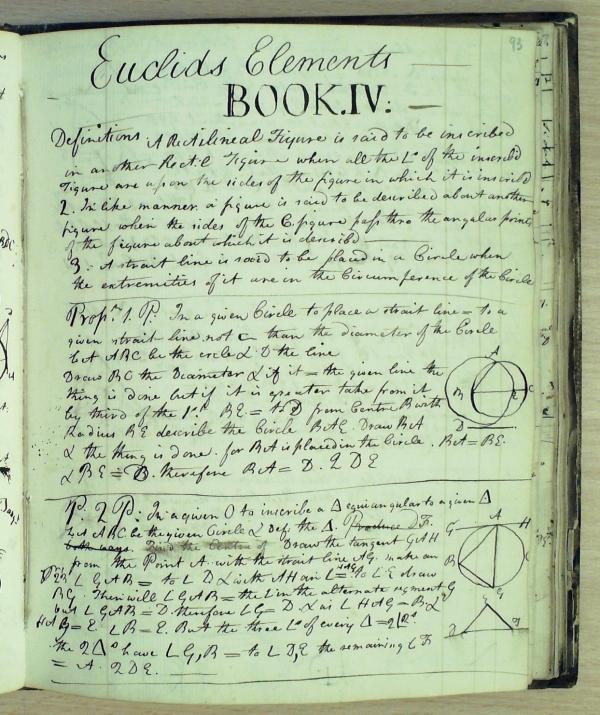 93
Euclids Elements
BOOK.IV:
Definitions. A Rectilineal Figure is said to be inscribed
in another Rectil Figure when all the Ls of the inscribd
Figure are upon the sides of the figure in which it is inscribd
2. In like manner a figure is said to be described about another
figure when the sides of the C. figure pass thro the angular points
of the figure about which it is describd
3. A strait line is said to be placed in a Circle when
the extremities of it are in the Circumference of the Circle
Propn. 1. P. In a given Circle to place a strait line = to a
given strait line not than the diameter of the Circle
Let ABC be the circle & D the line
Draw BC the Diameter & if it = the given line the
thing is done but if it is greater take from it
by third of the 1st BE = to D from Centre B with
Radius BE describe the Circle BAE. Draw BA
& the thing is done. for BA is placed in the Circle. BA = BE.
& BE = D. therefore BA = D. Q D E
A
B
E
C
D
P. 2 P: In a given O to inscribe a Δ equiangular to a given Δ
Let ABC be the given Circle & Def. the Δ. Produce
both ways. Find the Centre of Draw the tangent GAH
from the Point A. with the strait line AG. make an
L GAB = to L D & with AH an L = to L E draw
BG. Then will L GAB = the L in the alternate segment G
but L GAB = D. therefore L G = D. & as L HAG = B &
HAG = E. L B = E. But the three Ls of every Δ = 2
the 2 Δs have L G, B = to L D, E the remaining L F
= A. Q D E.
G
A
H
B